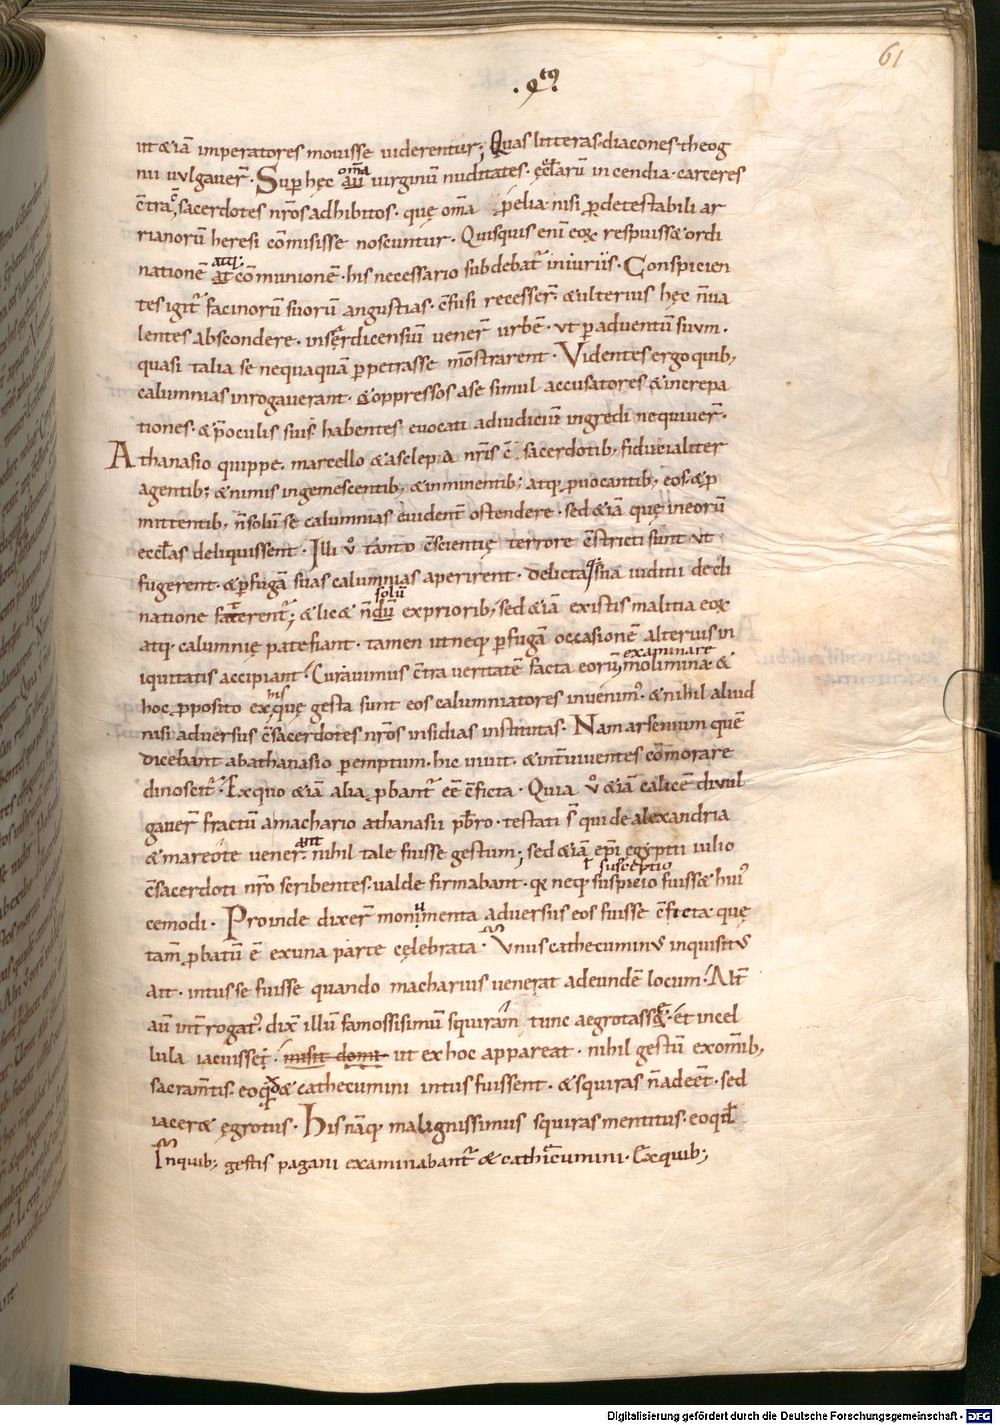 61
.qͭꝰ.
ut &iā imperatores mouisse uiderentur; Quas litteras·diacones·theog
nii uulgauer̄· Suꝑ hęc aū omīa uirginū nuditates· ęcl̄arū incendia·carceres
c̄tra sacerdotes nr̄os adhibitos· quę om̄a ꝓpelia·nisi ꝓ detestabili ar
rianorū heresi cōmisisse noscuntur· Quisquis eni eoꝝ respuiss& ordi
nationē atq; cōmunionē·his necessario subdebat᷑ iniuriis· Conspicien
tes igit᷑ facinorū suorū angustias· c̄fusi recesser̄· &ulterius hęc n̄ua
lentes abscondere· inserdicensiū uener̄ urbē· ut ꝑaduentū suum·
quasi talia se nequaquā ꝑpetrasse mōstrarent· Videntes ergo quib;
calumnias inrogauerant· &oppressos a se simul accusatores & increpa
tiones· & p̄oculis suis habentes euocati adiudiciū ingredi nequiuer̄·
Athanasio quippe· marcello & asclepia nr̄is c̄ sacerdotib; fiducialiter
agentib; & nimis ingemescentib; & imminentib; atq; ꝓuocantib; eos·&ꝓ
mittentib; n̄solū se calumnias euident̄ ostendere· sed &iā quę ineorū
eccl̄as deliquissent· Illi v̊ tanto c̄scientię terrore c̄stricti sunt· ut
fugerent· &ꝑfugā suas calumnias aperirent· delictaq; sua uiditu decli
natione faterent᷑; & lic& n̄dū solū exprioríb; sed &iā existis malitia eoꝝ
atq; calumnię patefiant· tamen utneq; ꝑfugā occasionē alterius in
iquitatis accipiant· Curauimus c̄tra ueritatē facta eorū examinare molimina·&
hoc ꝓposito ex his quę gesta sunt eos calumniatores inuenim᷒· &nihil aliud
nisi aduersus c̄sacerdotes nr̄os insidias institutas· Nam arsenium quē
dicebant abathanasio ꝑemptum·hic uiuit· &int̄ uiuentes cōmorare
dinoscit᷑· Exquo &iā alia ꝓbant᷑ eē c̄ficta· Quia v̊ &iā calicē diuul
gauer̄ fractū amachario athanasii pb̄ro· testati s̄ quide alexandria
& mareote uener̄ant nihil tale fuisse gestum; sed &iā ep̄i egyptii iulio
c̄sacerdoti nr̄o scribentes·ualde firmabant·qꝫ neq; suspicio ł susceptio fuiss& hui᷒
cemodi· Proinde dixer̄ monumenta aduersus eos fuisse c̄ficta· quę
tam̄ ꝓbatū ē exuna parte cęlebrata· Vnus cathecuminus inquisitus
ait· intus se fuisse quando macharius uenerat adeundē locum· Alt̄
aū int̄rogat᷒· dix̄ illū famossisimū squiram tunc aegrotass&· et incel
lula iacuisset· misit domi ut ex hoc appareat· nihil gestū exom̄ib;
sacram̄tis· eoqd & cathecumini intus fuissent· &squiras n̄adeēt· sed
iacer& ęgrotus· His nāq; malignissimus squiras mentitus·eoqd
Inquib; gestis pagani examinabant᷑ & cathicumini· Exquib;
Digitalisierung gefördert durch die Deutsche Forschungsgemeinschaft - DFG